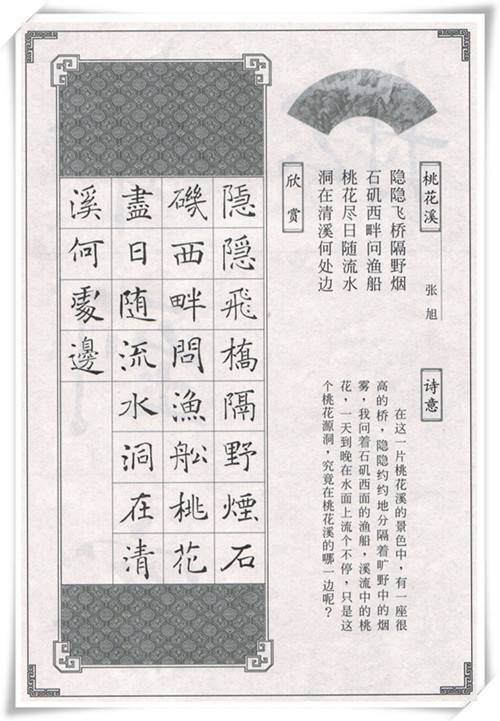 桃花溪
张旭
隐隐飞桥隔野烟
石矶西畔问渔船
桃花尽日随流水
洞在清溪何处边
诗意
在这一片桃花溪的景色中，有一座很
高的桥，隐隐约约地分隔着旷野中的烟
雾，我问着石矶西面的渔船，溪流中的桃
花，一天到晚在水面上流个不停，只是这
个桃花源洞，究竟在桃花溪的哪一边呢？
欣赏
隱隱飛橋隔野煙石
磯西畔問漁船桃花
盡日随流水洞在清
溪何處邊